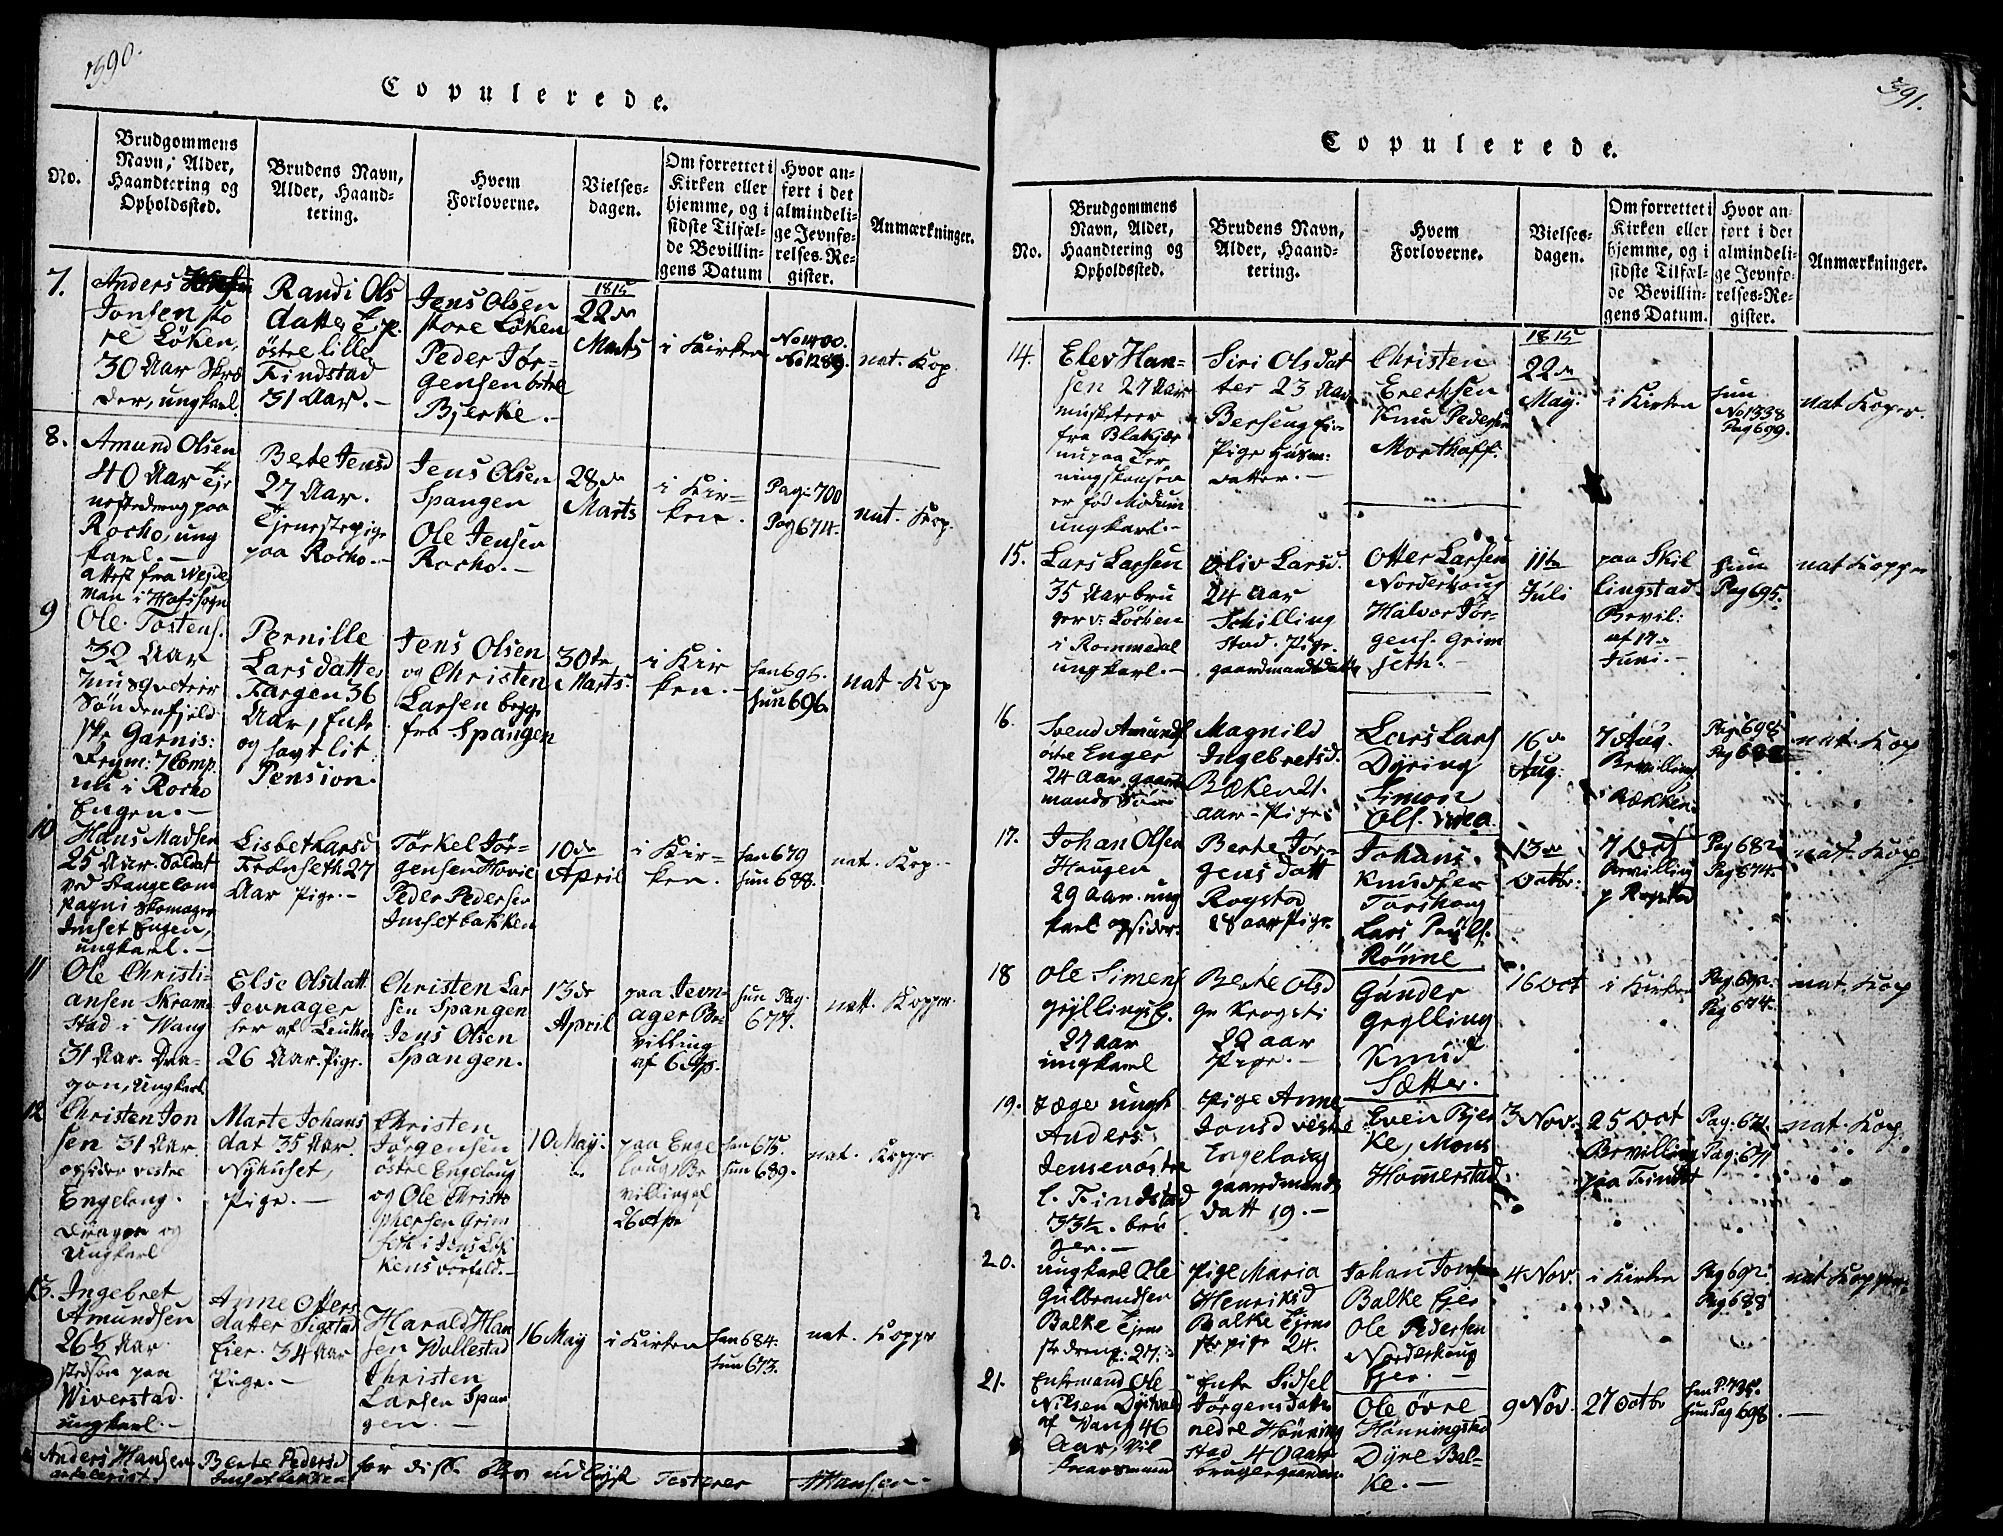 390.
Copulerede.
No.
Brudgommens
Navn, Alder,
Haandtering og
Opholdssted.
Brudens Navn,
Alder, Haand-
tering.
Hvem
Forloverne.
Vielses-
dagen.
Om forrettet i
Kirken eller
hjemme, og i
sidste Tilfæl-
de Bevillin-
gens Datum
Hvor an-
ført i det
almindeli-
ge Jevnfø-
relses-Re-
gister.
Anmærkninger.
7.
Anders
Jonsen sto
re Löken,
30 Aar Skræ
der, ungkarl.
Randi Ols
datter
östre lille
Findstad
31 Aar.-
Jens Olsen
store Löken
Peder Jör-
gensen östre
Bjerke.-
1815
22de
Marts
i Kirken
No 1400.
No 1289.
nat. Kop.
8.
Amund Olsen
40 Aar Tje
nestedreng paa
Rocho, ung
karl.-
Berte Jensd
27 Aar.
Tjenestepige
paa Rocho.-
Jens Olsen
Spangen
Ole Jensen
Rocho.-
28de
Marts
i Kir=
ken.
Pag: 700
Pag 674.
nat. Kop.
9
Attest fra
Ole Tostens.
32 Aar
Musqueteer
Söndenfjeld
ske Garnis:
Regm: 7 Comp.
nu i Rocho
Engen.-
Pernille
Larsdatter
Fargen 36
Aar, Enke
og havt lit
Pension.
Jens Olsen
og Christen
Larsen begge
fra Spangen
30te
Marts.
i Kir
ken.-
han 695.
hun 696.
nat. Kop
10
Hans Madsen
25 Aar. Soldat
ved Stange Com
pagni Skomager
Imset Engen,
ungkarl.-
Lisbet Larsd
Frönseth 27
Aar Pige.-
Törkel Jör-
gensen Hovie
Peder Pedersen
Imsetbakken
10de
April
i Kir-
ken.
han 679
hun 688.
nat. Kop.
11
Ole Christi-
ansen Skram
stad i Wang
31 Aar. Dra-
gon, Ungkarl
Else Olsdatt
Jevnager
26 Aar. Pige.
Christen Lar
sen Spangen
Jens Olsen
Spangen.
13de
April
paa Jevn-
ager Be-
villing
af 6 Ap.
hun Pag.
677.
nat. Kopper.
12
Christen Jon
sen 31 Aar.
opsider vestre
Engelaug.
Dragon og
Ungkarl
Marte Johans
dat 35 Aar.
Nyhuset,
Pige.-
Christen
Jørgensen
östre Engelaug
og Ole Christo
phersen Grim
seth i Jens
10 May.
paa Enge
laug, Be
villing af
26 Apr
han 675.
hun 689.
nat. Kopper
13.
Ingebret
Amundsen
26½ Aar.
stedsön paa
Wiverstad.
ungkarl.-
Anne Otters
datter Sigstad
Eier. 34 Aar
Pige.-
Harald Han
sen Wollestad
Christen
Larsen Span
gen.-
16 May
i Kirken
han 684.
hun 673.
nat. Kopper
Anders Hansen
Berte Pedersd
Imsetbakken
Testerer
Hansen
391.
Copulerede.
No.
Brudgommens
Navn, Alder,
Haandtering og
Opholdssted.
Brudens Navn,
Alder, Haand-
tering.
Hvem
Forloverne.
Vielses-
dagen.
Om forrettet i
Kirken eller
hjemme, og i
sidste Tilfæl-
de Bevillin-
gens Datum.
Hvor an-
ført i det
almindeli-
ge Jevnfø-
relses-Re-
gister.
Anmærkninger.
14.
Elev Han-
sen 27 Aar
musketeer
fra Blakjær
nu paa
er föd Modum
ungkarl.-
Siri Olsdat
ter 23 Aar
Berseng
Pige Husm:
datter.-
Christen
Erertsen
Knud Pedersen
Morthoff.
1815
22de
May.
i Kirken
hun
No 1338
Pag 699.
nat Koper.
15.
Lars Larsen
35 Aar bru
ger
i Rommedal
ungkarl.-
Oliv Larsd.
24 Aar
Schilling
stad. Pige.
gaardmandsdatter
Otter Larsen
Norderhoug
Halvor Jör-
gens. Grim
seth.-
11te
Juli
paa Skil
lingstad.
Bevil:
af 17de
Juni.-
hun
Pag 695.
nat Kopper
16.
Svend Amunds
östre Enger
24 Aar, gaard
mands Sön
Magnild
Ingebretsd.
Bæken 21.
Aar - Pige
Lars Lars
Dyring
Simon
Ols.
16de
Aug:
7 Aug.
Bevilling
Bækken
Pag 698
nat. Kop
17.
Johan Olsen
Haugen
29 Aar. ung
karl opsider.
Berte Jör-
gens datt
Rogstad
Aar Pige
Johans
Knudsen
Torshoug
Lars
Rönne
13de
Octbr:
7 Oct
Bevilling
p Rogstad
Pag 682
Pag 674.
nat. Kop
18
Ole Simens
gyllings E.
27 Aar
ungkarl
Berte Olsd
Krogsti
22 Aar
Pige.-
Gunder
Gryelling
Knud
Sætter.
16 Oct
i Kirken
Pag 692.
Pag 674.
nat. Kop
19.
Jæger ungk
Anders
Jensen östre
l. Findstad
33½. bru
ger.-
Pige Anne
Jonsd vestre
Engelaug
gaardmands
datt 19.-
Even Bjer
ke, Mons
Homerstad
3 Nov.
25 Oct
Bevilling
paa Findst
Pag: 671
nat. Kop
20.
ungkarl Ole
Gulbrandsen
Balke Tjene
stedreng. 27.
Pige Maria
Henriksd
Balke Tjene
ste pige 24.
Johan Jonsen
Balke Ejer
Ole Pedersen
Norderhoug
Ejer.-
4 Nov.
i Kirken
Pag 692
Pag 688
nat Kopper
21.
Enkemand Ole
Nilsen Dystvold
af Vang 46
Aar,
Enke Sidsel
Jørgensdatter
nedre Hönning
stad 40 Aar
Ole övre
Hönningstad
Dyre Bal-
ke.-
9 Nov.
27 Octbr
han P. 735.
hun Pag 698.